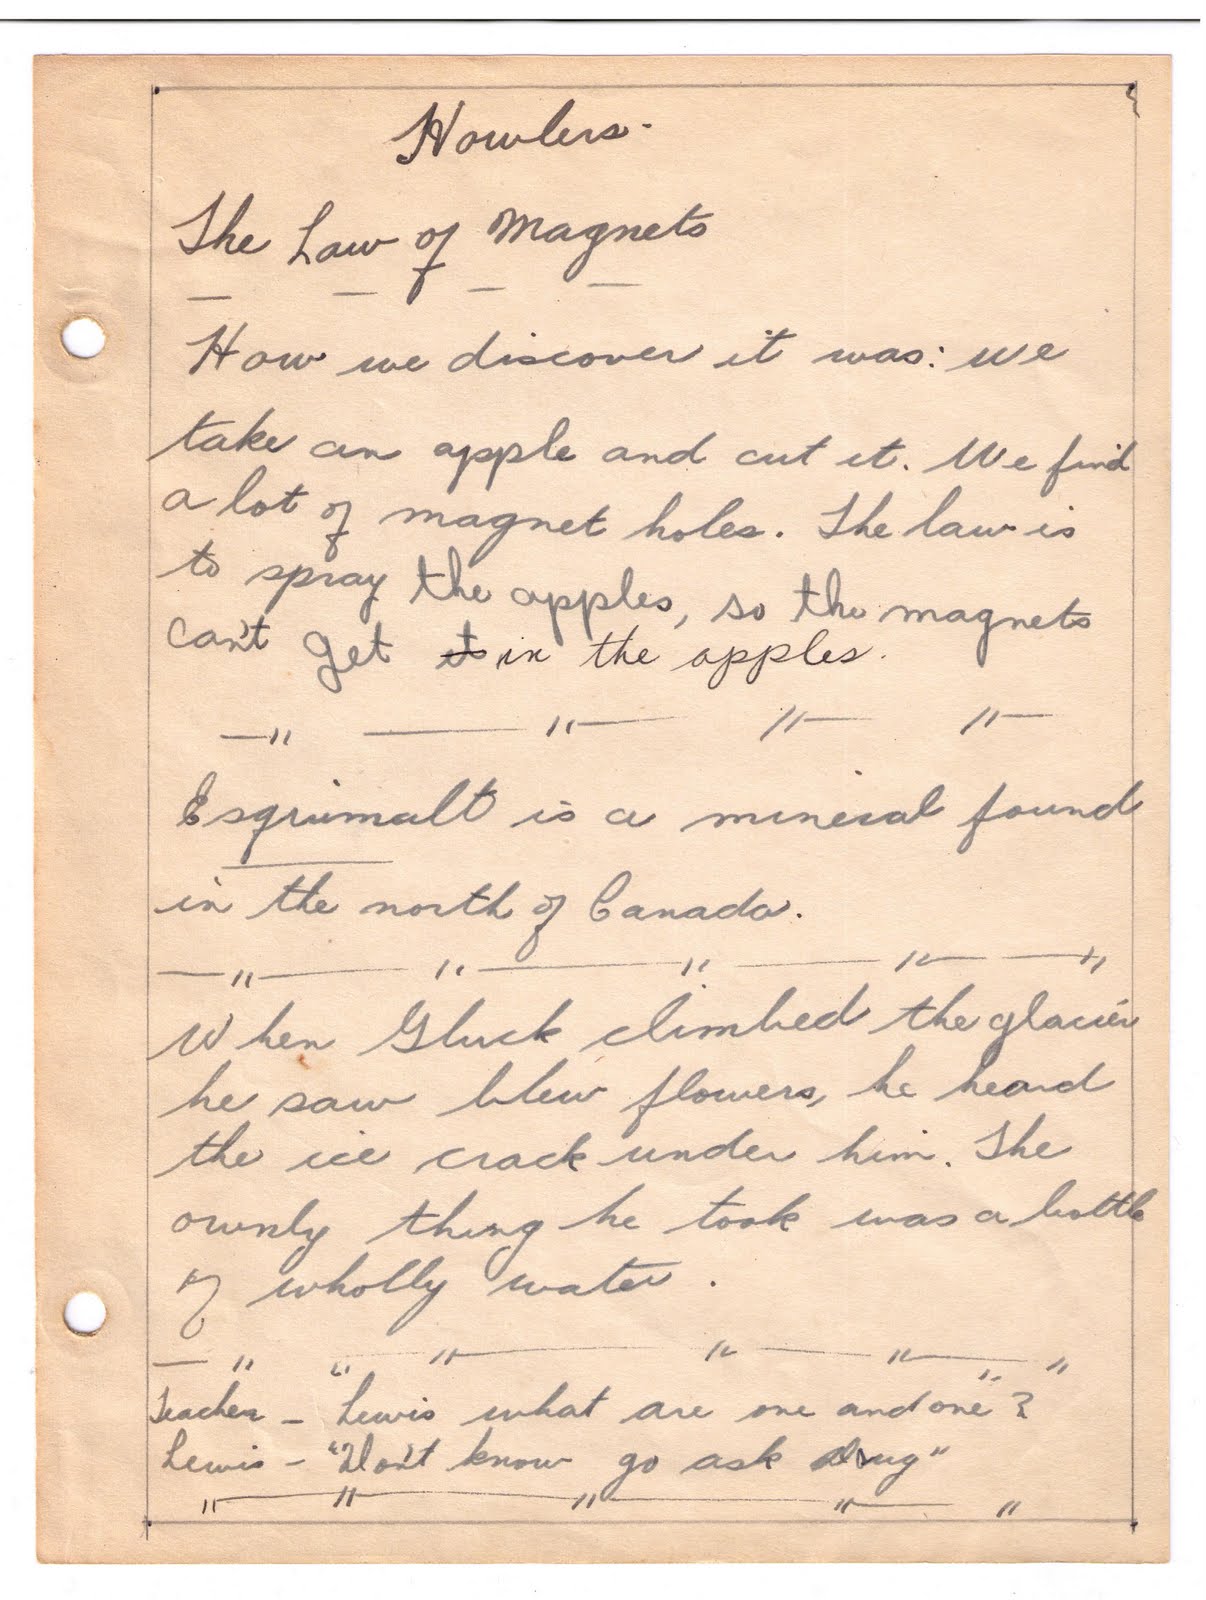 Howlers.
The Law of Magnets
How we discover it was: we
take an apple and cut it. We find
a lot of magnet holes. The law is
to spray the apples, so the magnets
can't get in the apples.
Esqrimalt is a mineral found
in the north of Canada.
When Gluck climbed the glacier
he saw blew flowers, he heard
the ice crack under him. The
ownly thing he took was a bottle
of wholly water.
Teacher - "Lewis what are one and one"?
Lewis - "Don't know go ask Doug"